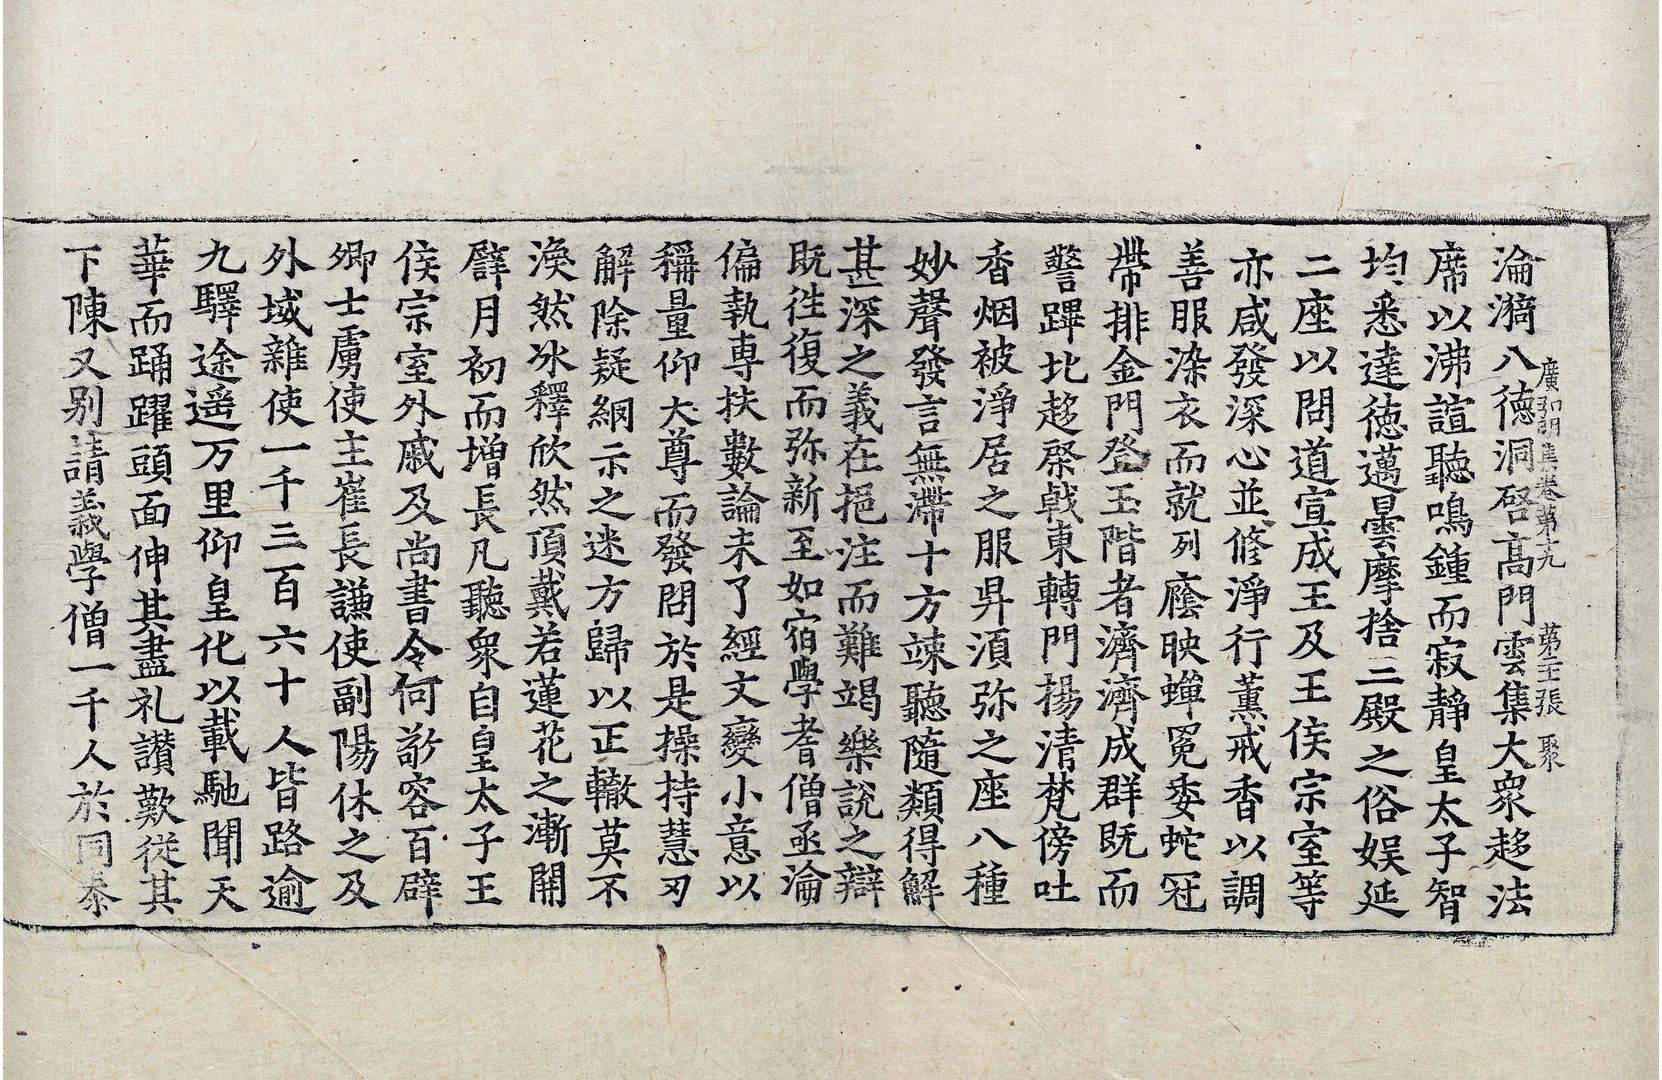 淪漪八德洞啓高門雲集大衆趍法
廣弘明集卷第十九　第二十張　聚
席以沸諠聽鳴鍾而寂靜皇太子智
均悉達德邁曇摩捨三殿之俗娛延
二座以問道宣成王及王侯宗室等
亦咸發深心並修淨行薰戒香以調
善服染衣而就列廕映蟬冕委蛇冠
帶排金門登玉階者濟濟成群既而
警蹕比趍棨戟東轉門揚清梵傍吐
香烟被淨居之服昇須弥之座八種
妙聲發言無滯十方竦聽隨類得解
甚深之義在挹注而難竭樂說之辯
既徃復而弥新至如宿學耆僧亟淪
偏執専扶數論未了經文變小意以
稱量仰大尊而發問於是操持慧刃
解除疑網示之迷方歸以正轍莫不
渙然冰釋欣然頂戴若蓮花之漸開
譬月初而增長凡聽衆自皇太子王
侯宗室外戚及尚書令何敬容百辟
卿士虜使主崔長謙使副陽休之及
外域雜使一千三百六十人皆路逾
九驛途遥万里仰皇化以載馳聞天
華而踊躍頭面伸其盡礼讃歎従其
下陳又別請義學僧一千人於同泰